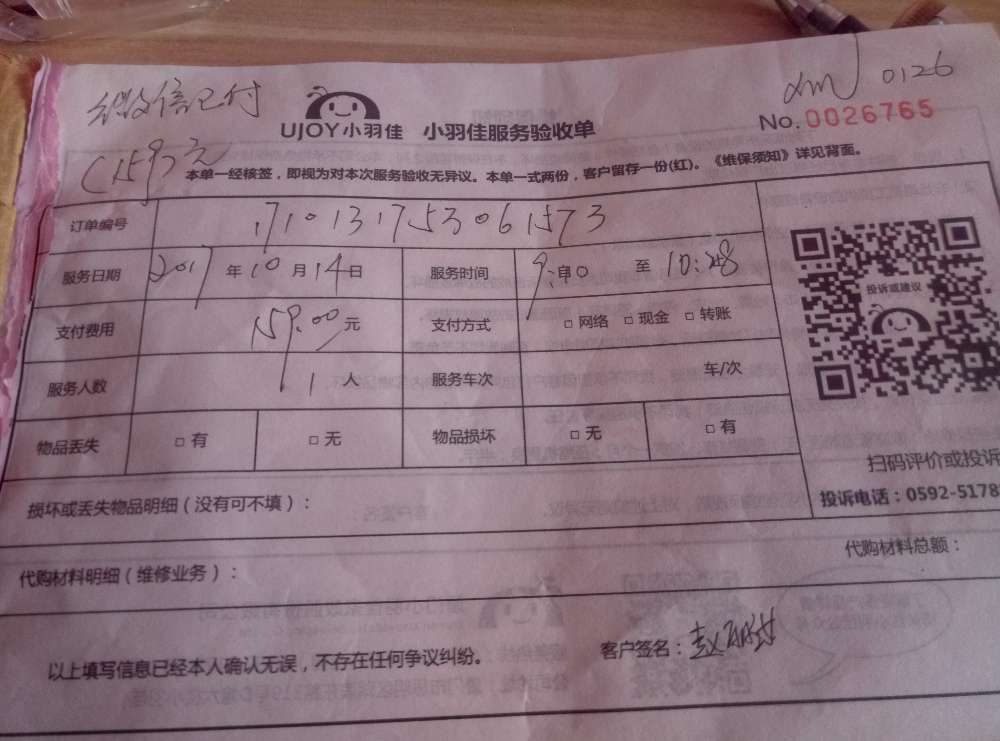 微信已付
159元
xm 0126
UJOY小羽佳 小羽佳服务验收单
No.0026765
本单一经核签，即视为对本次服务验收无异议。本单一式两份，客户留存一份(红)。《维保须知》详见背面。
订单编号 1710131753061573
服务日期 2017年10月14日 服务时间 至10:48
支付费用 159.00元 支付方式 □网络 □现金 □转账
服务人数 1人 服务车次 车/次
物品丢失 □有 □无 物品损坏 □无 □有
投诉或建议
扫码评价或投诉
投诉电话：0592-5178
损坏或丢失物品明细（没有可不填）：
代购材料明细（维修业务）： 代购材料总额：
以上填写信息已经本人确认无误，不存在任何争议纠纷。 客户签名：赵